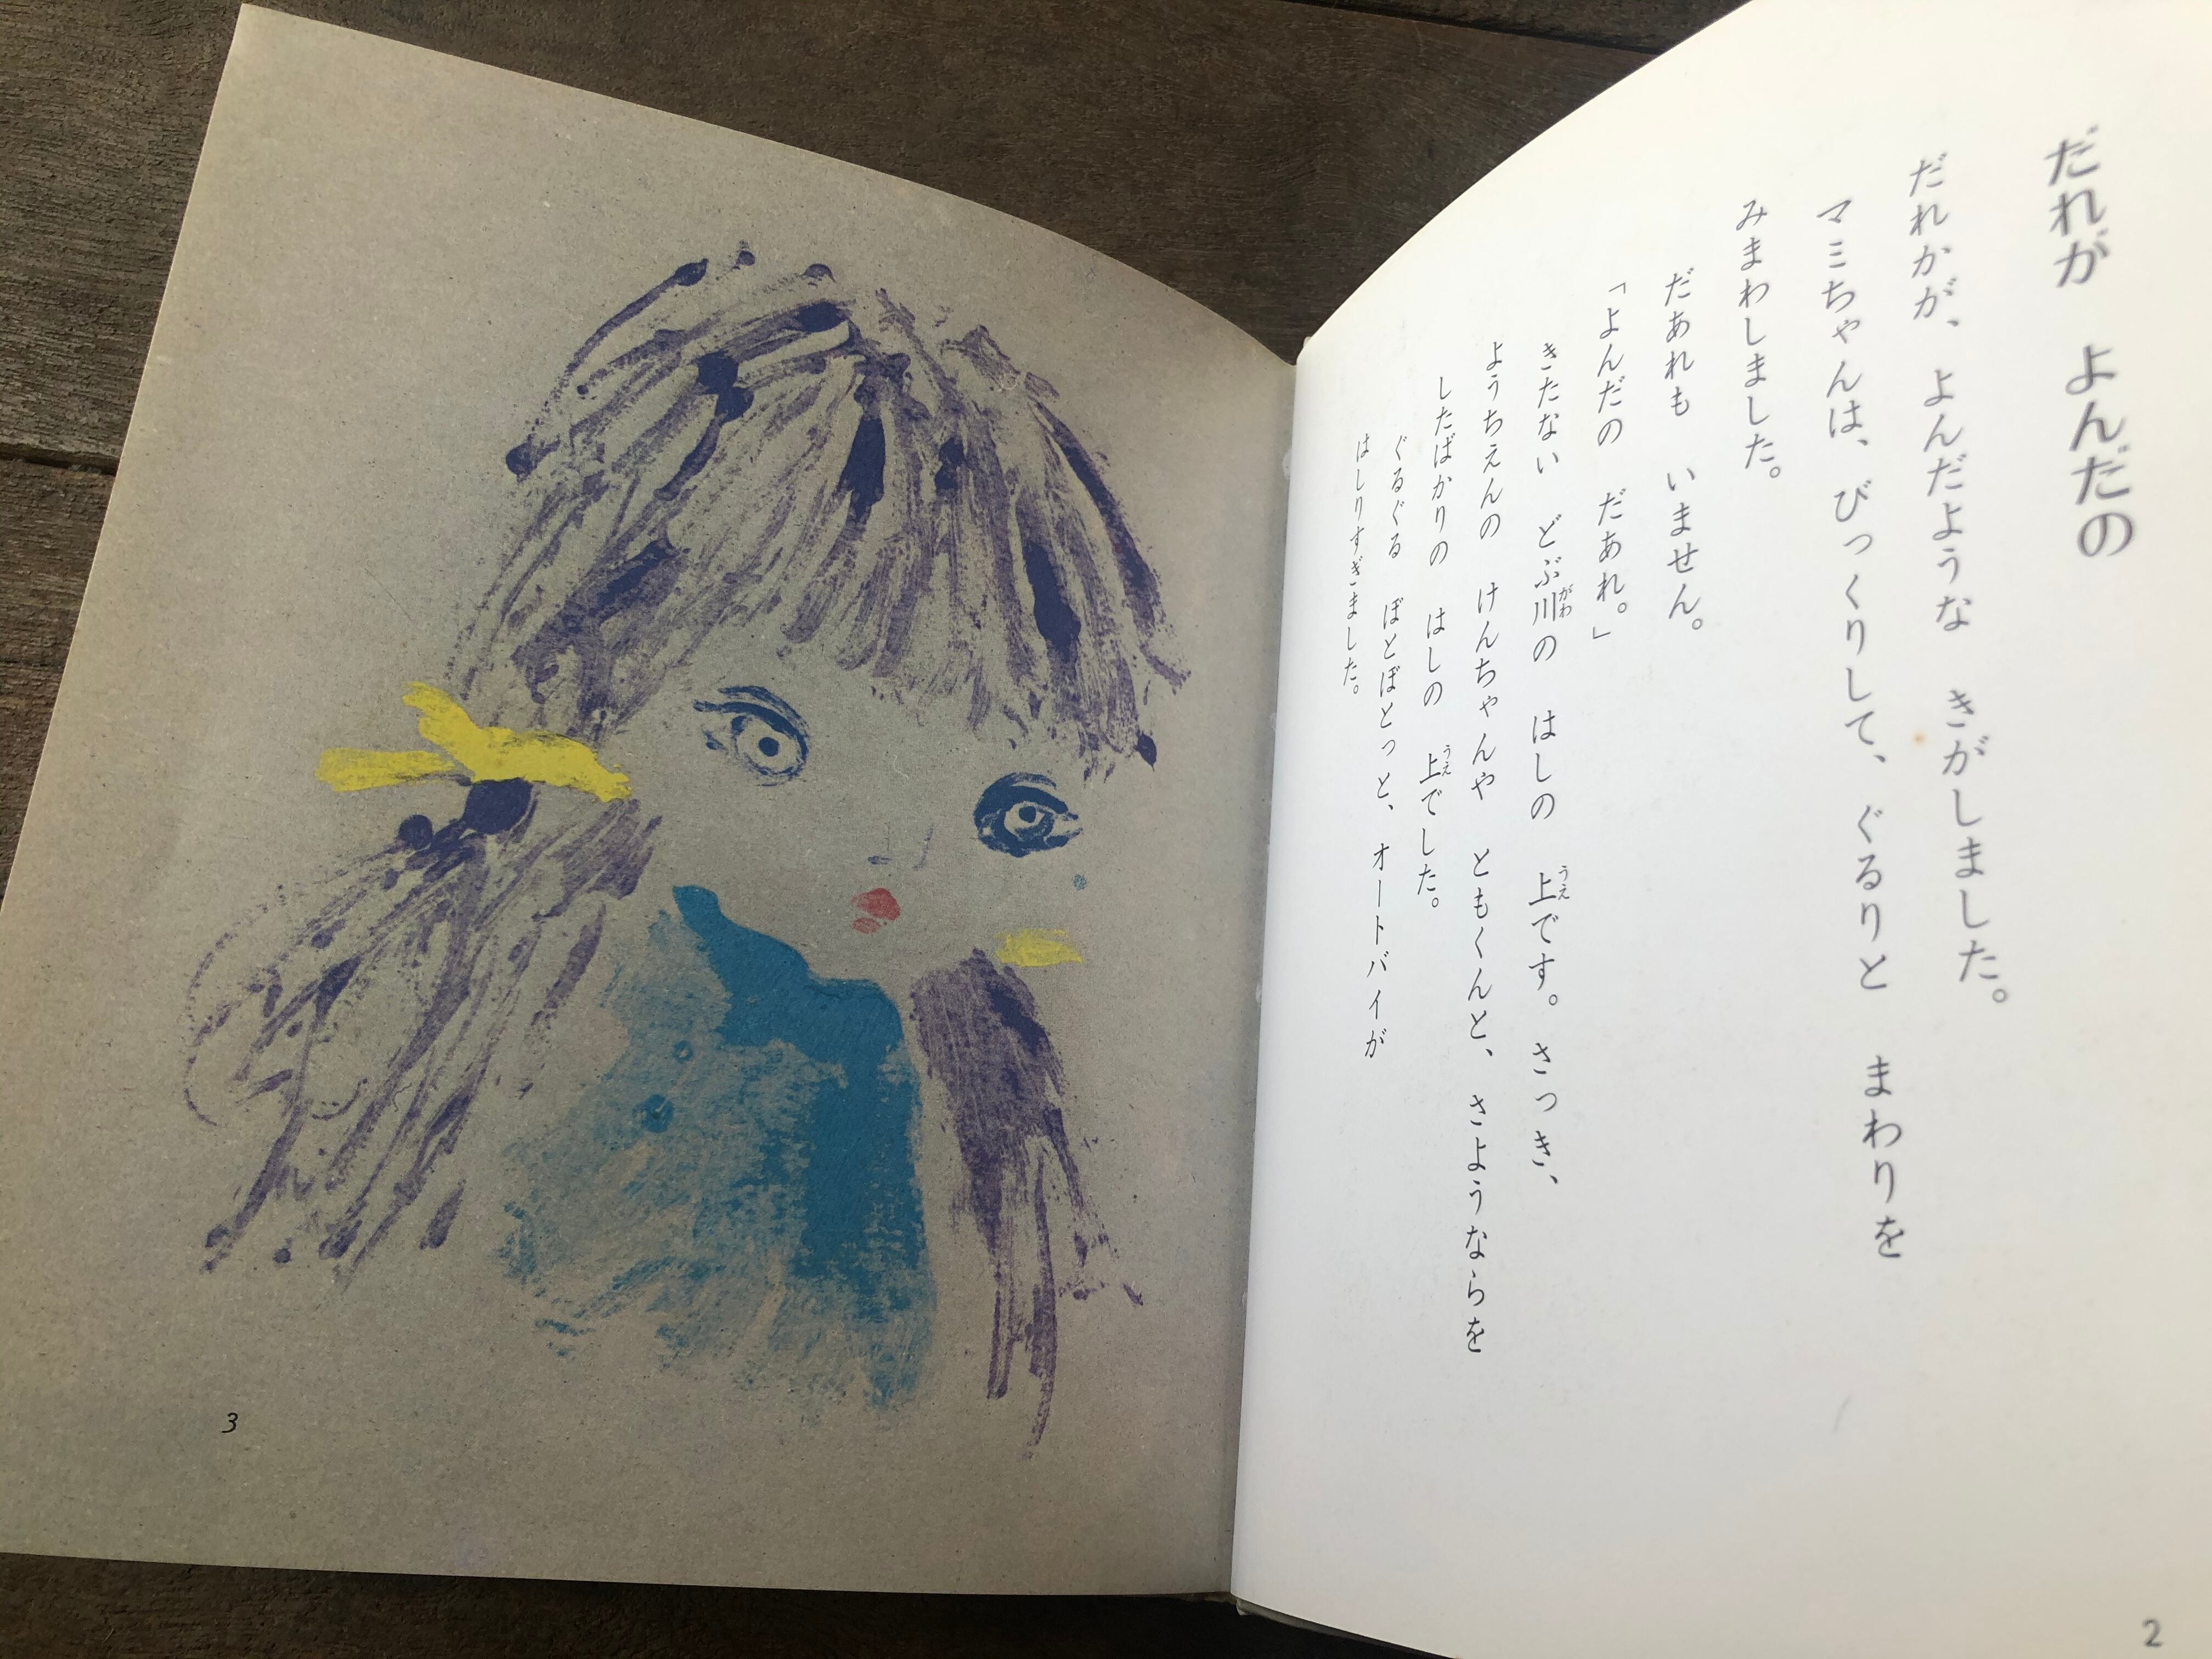 だれが よんだの
だれかが、よんだような きがしました。
マミちゃんは、びっくりして、ぐるりと まわりを
みまわしました。
だあれも いません。
「よんだの だあれ。」
きたない どぶ川の はしの 上です。さっき、
がわ
うえ
ようちえんの けんちゃんや ともくんと、さようならを
したばかりの はしの 上でした。
うえ
ぐるぐる ぼとぼとっと、オートバイが
はしりすぎました。
2
3